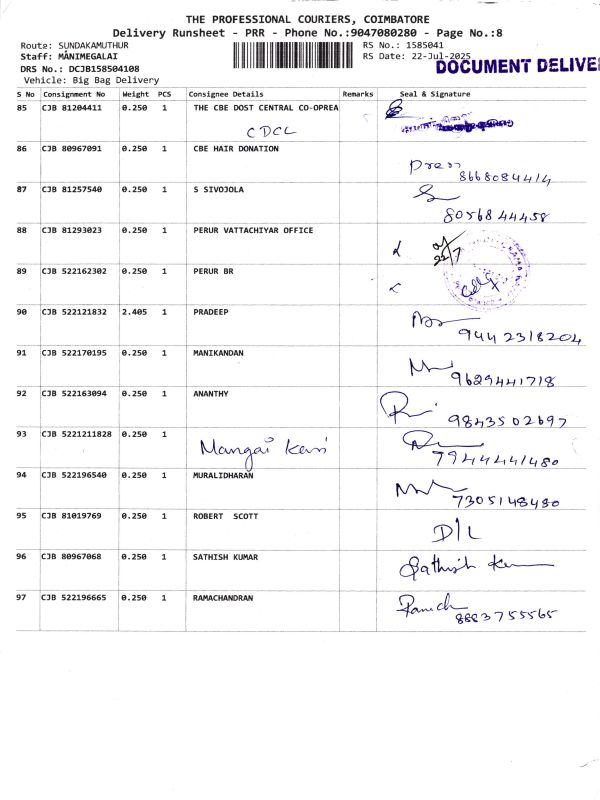 THE PROFESSIONAL COURIERS, COIMBATORE
Delivery Runsheet - PRR - Phone No.:9047080280 - Page No.:8
Route: SUNDAKAMUTHUR RS No.: 1585041
Staff: MANIMEGALAI RS Date: 22-Jul-2025
DOCUMENT DELIVE
DRS No.: DCJB158504108
Vehicle: Big Bag Delivery
S No Consignment No Weight PCS Consignee Details Remarks Seal & Signature
85 CJB 81204411 0.250 1 THE CBE DOST CENTRAL CO-OPREA
CDCL
86 CJB 80967091 0.250 1 CBE HAIR DONATION
Press
8668084414
87 CJB 81257540 0.250 1 S SIVOJOLA
8056844458
88 CJB 81293023 0.250 1 PERUR VATTACHIYAR OFFICE
22/7
89 CJB 522162302 0.250 1 PERUR BR
90 CJB 522121832 2.405 1 PRADEEP
9442318204
91 CJB 522170195 0.250 1 MANIKANDAN
9629441718
92 CJB 522163094 0.250 1 ANANTHY
9843502697
93 CJB 5221211828 0.250 1
Mangai Kani
7944441480
94 CJB 522196540 0.250 1 MURALIDHARAN
7305148480
95 CJB 81019769 0.250 1 ROBERT SCOTT
D/L
96 CJB 80967068 0.250 1 SATHISH KUMAR
Sathish Kum
97 CJB 522196665 0.250 1 RAMACHANDRAN
Ramch
8883755565